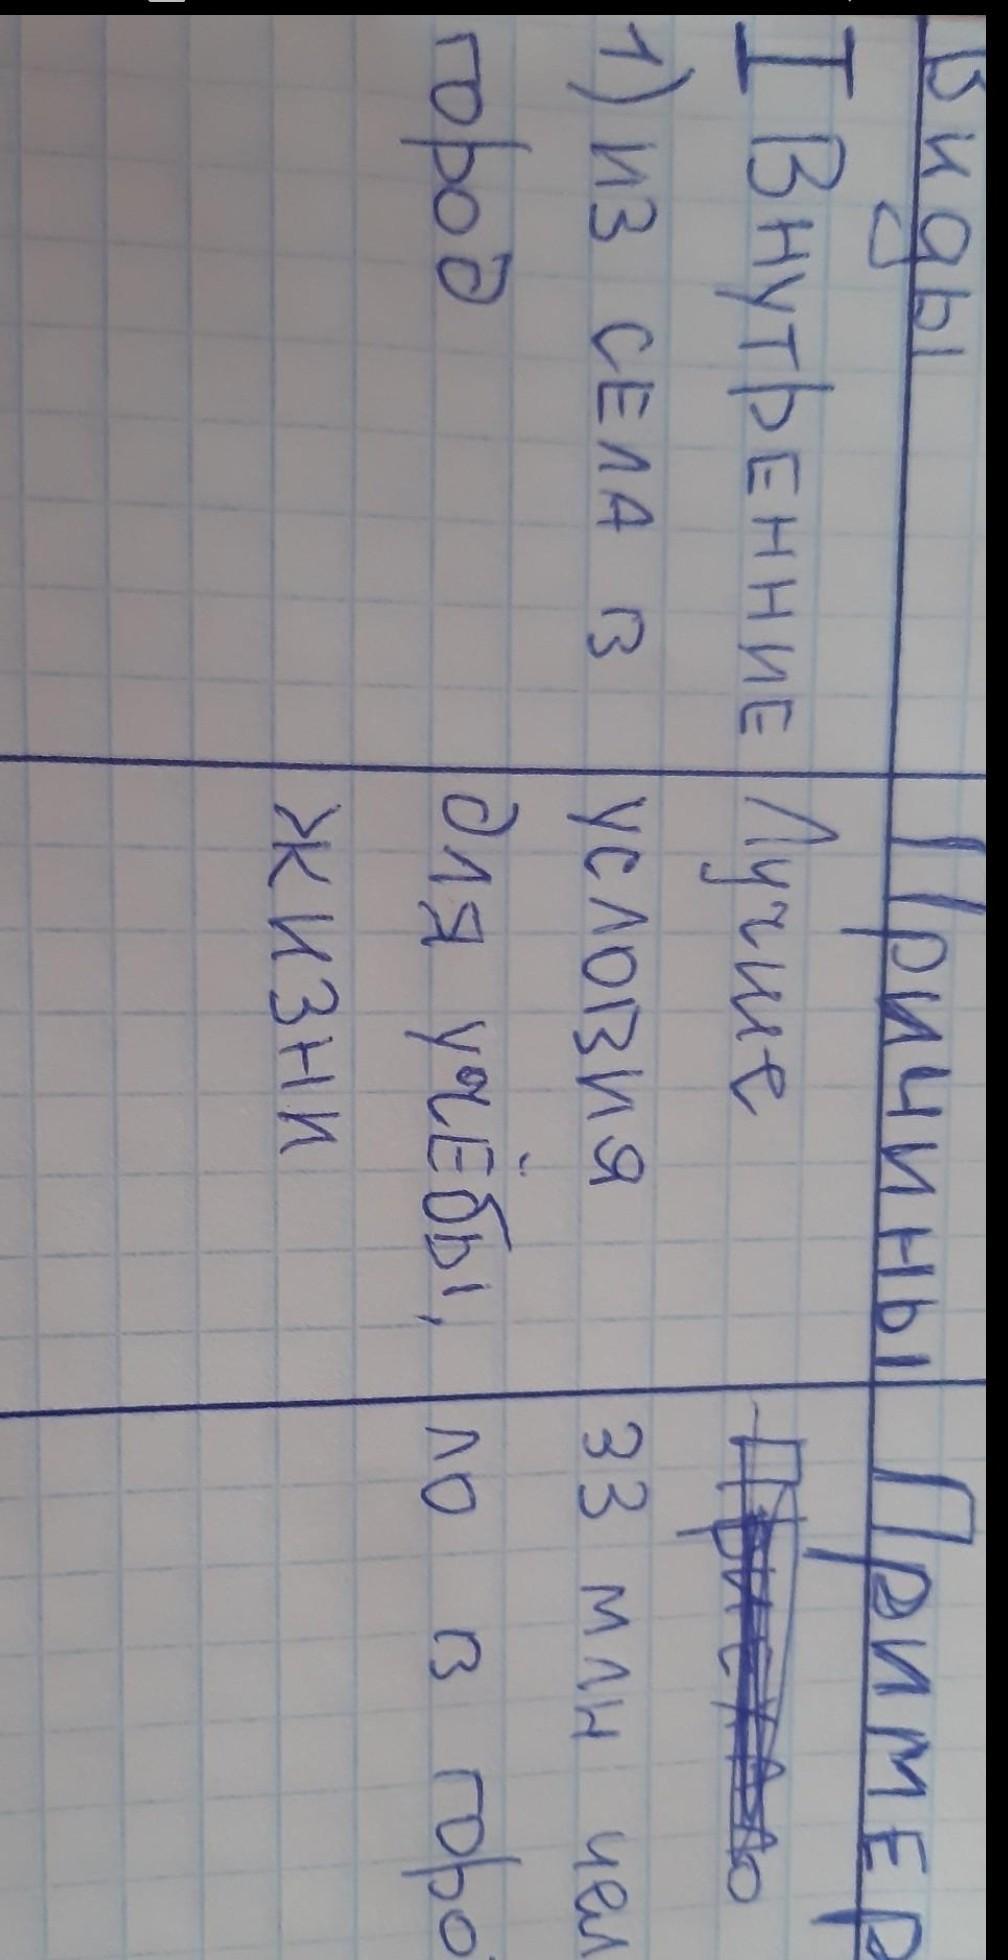 Виды Причины Пример
I Внутренние Лучшие
1) из села в условия 33 млн чел
город для учёбы, ло в горо
жизни